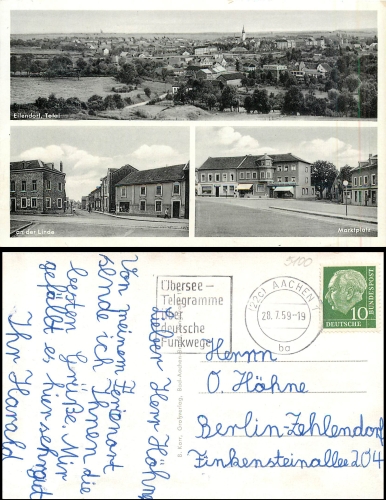 Eilendorf, Total
an der Linde
Marktplatz
5100
Übersee –
Telegramme
über
deutsche
Funkwege
(22c) AACHEN 1
28.7.59-19
ba
DEUTSCHE
BUNDESPOST
10
Lieber Herr Höhne
Von meinem Ferienort
sende ich Ihnen die
besten Grüße. Mir
gefällt es hier sehr gut
Ihr Harald
Herrn
O. Höhne
Berlin-Zehlendorf
Finkensteinallee 204